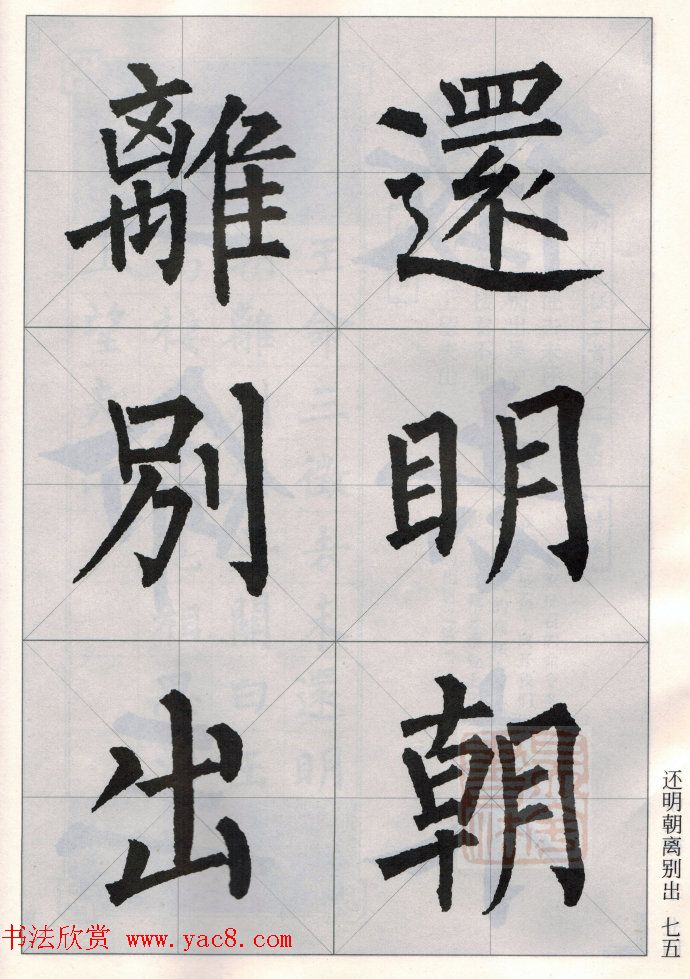 還明朝
離別出
还明朝离别出 七五
书法欣赏 www.yac8.com